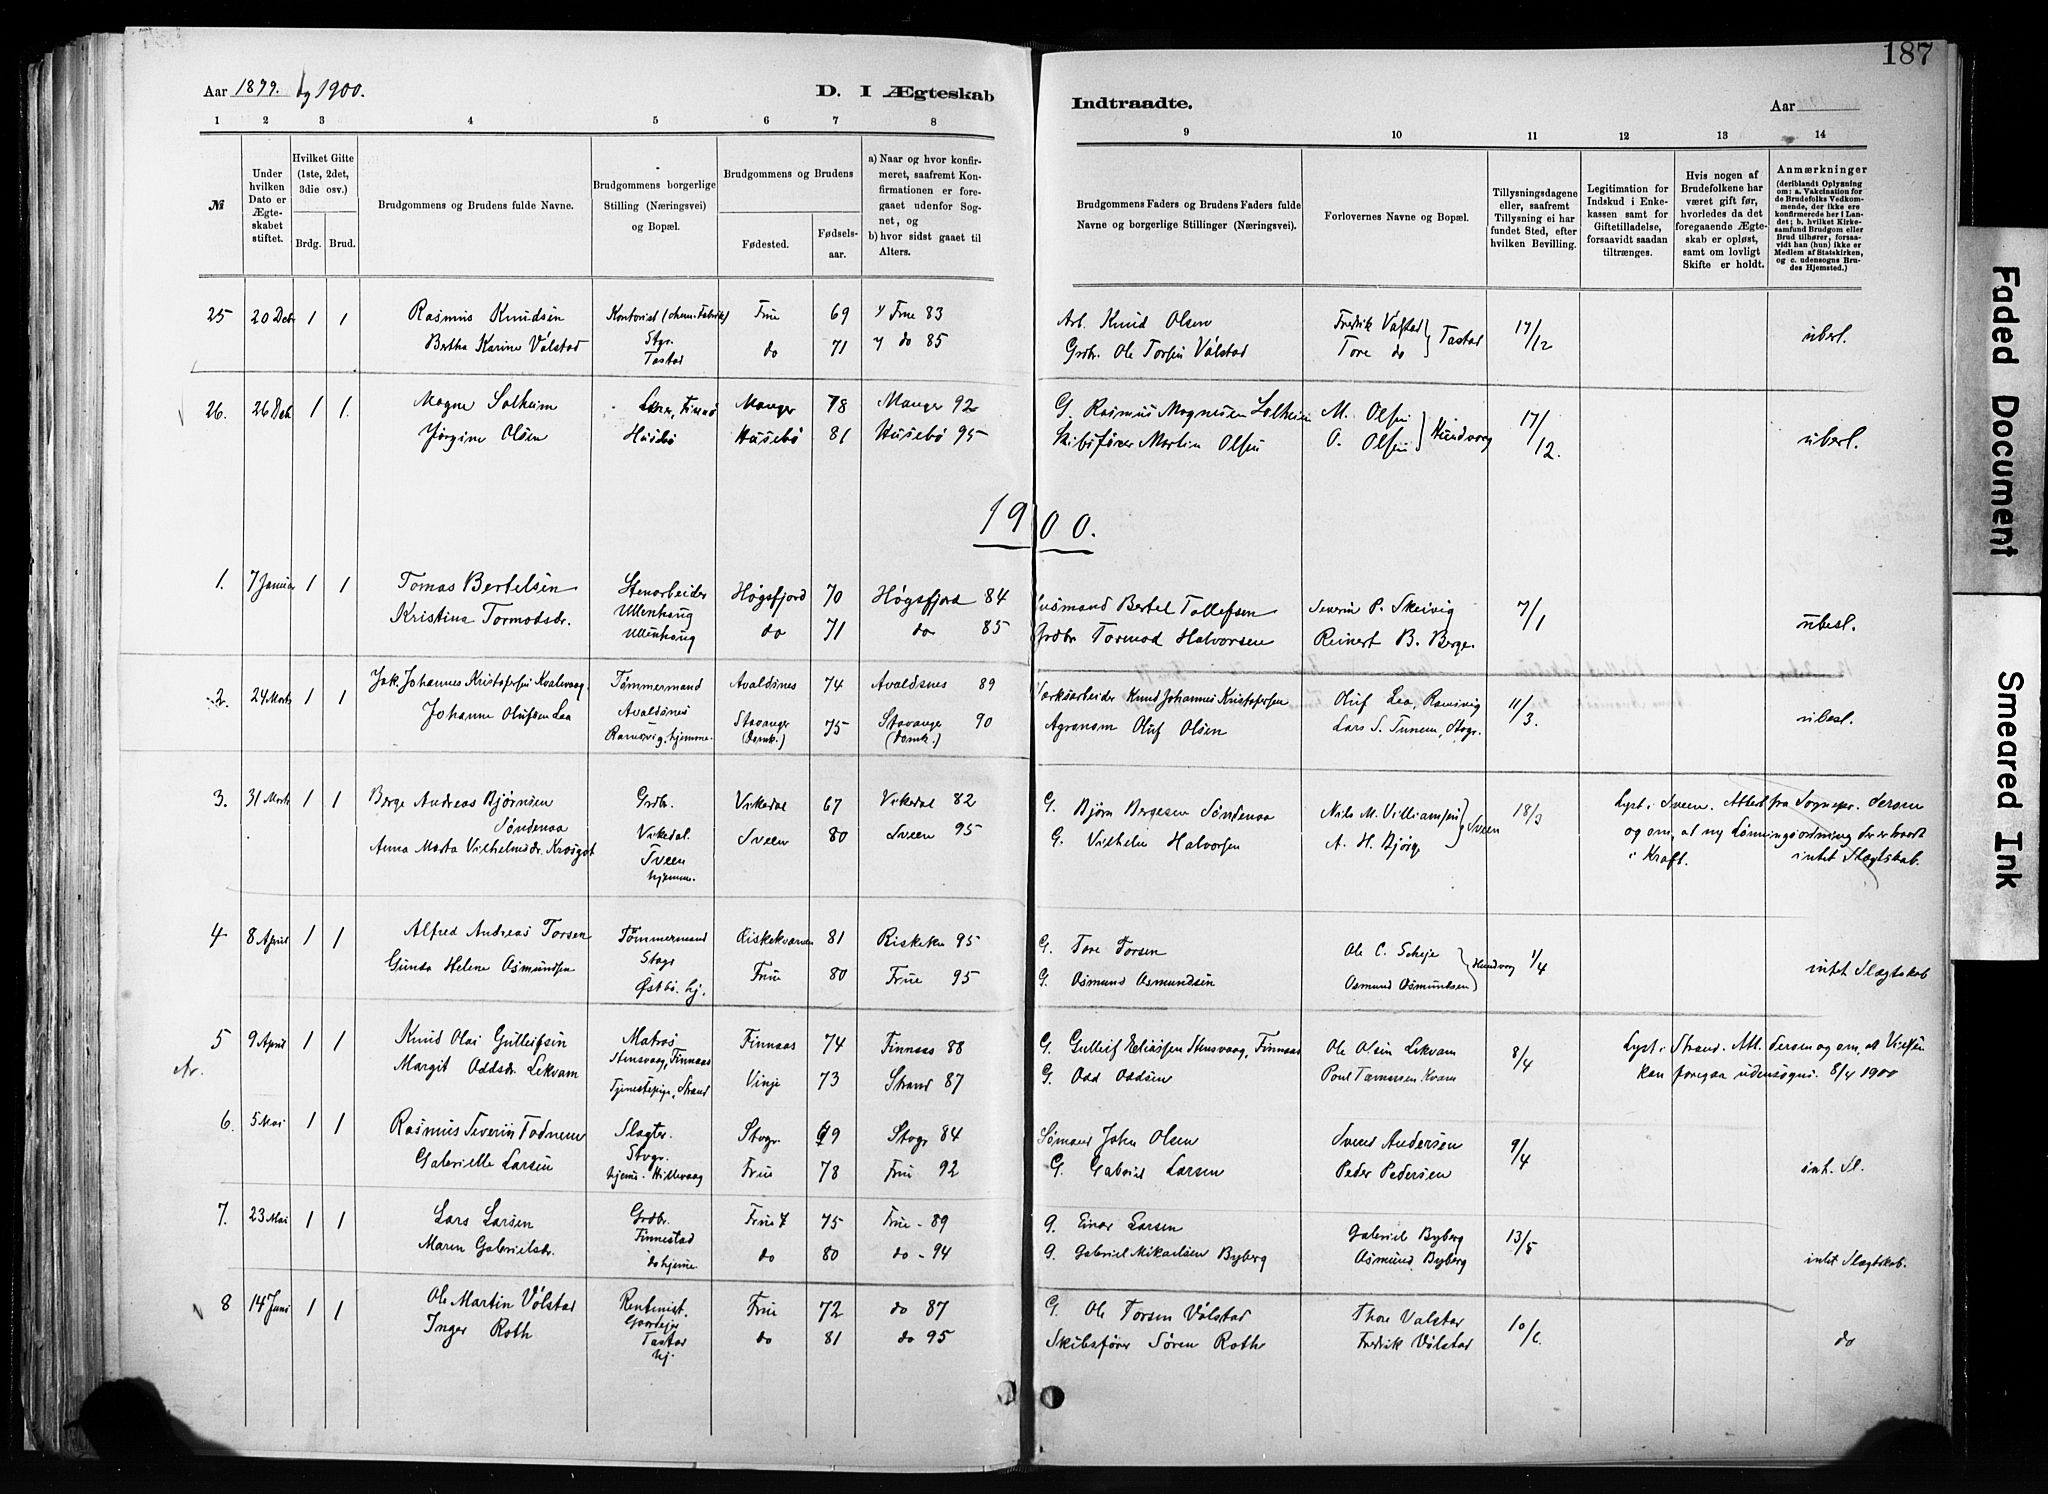 187
Aar 1899. og 1900.
D. I Ægteskab
Indtraadte.
Aar
1 2 3 4 5 6 7 8
9 10 11 12 13 14
№
Under hvilken Dato er Ægteskabet stiftet.
Hvilket Gifte (1ste, 2det, 3die osv.)
Brdg. Brud.
Brudgommens og Brudens fulde Navne.
Brudgommens borgerlige Stilling (Næringsvei) og Bopæl.
Brudgommens og Brudens
Fødested. Fødselsaar.
a) Naar og hvor konfirmeret, saafremt Konfirmationen er foregaaet udenfor Sognet, og
b) hvor sidst gaaet til Alters.
Brudgommens Faders og Brudens Faders fulde Navne og borgerlige Stillinger (Næringsvei).
Forlovernes Navne og Bopæl.
Tillysningsdagene eller, saafremt Tillysning ei har fundet Sted, efter hvilken Bevilling.
Legitimation for Indskud i Enkekassen samt for Giftetilladelse, forsaavidt saadan tiltrænges.
Hvis nogen af Brudefolkene har været gift før, hvorledes da det foregaaende Ægteskab er opløst, samt om lovligt Skifte er holdt.
Anmærkninger
(deriblandt Oplysning om: a. Vakcination for de Brudefolks Vedkommende, der ikke ere konfirmerede her i Landet; b. hvilket Kirkesamfund Brudgom eller Brud tilhører, forsaavidt han (hun) ikke er Medlem af Statskirken, og c. udensogns Brudes Hjemsted.)
25 20 Dec 1 1 Rasmus Knudsen Kontorist (chem. Fabrik) Frue 69 Frue 83 Arb. Knud Olsen Fredrik Valstad 17/12 ubesl.
Bertha Karine Vålstad Stgr. Tastad do 71 do 85 Grdbr. Ole Torsen Vålstad Tore do Tastad
26. 26 Dec 1 1. Magne Solheim Lærer, Finnø Manger 78 Manger 92 G. Rasmus Magnesen Solheim M. Olsen Hundvaag 17/12. ubesl.
Jørgine Olsen Husebø Husebø 81 Husebø 95 Skibsfører Martin Olsen O. Olsen
1900.
1. 7 Januar 1 1 Tomas Bertelsen Stenarbeider Ullenhaug Høgsfjord 70 Høgsfjord 84 Husmand Bertel Tollefsen Severin P. Skeivig 7/1 ubesl.
Kristina Tormodsdr. Ullenhaug do 71 do 85 Grdbr Tormod Halvorsen Reinert B. Berge.
2. 24 Marts 1 1 Jak. Johannes Kristofersen Kvalevaag Tømmermand Avaldsnes Avaldsnes 74 Avaldsnes 89 Værksarbeider Knud Johannes Kristofersen Oluf Lea, Ramsvig 11/3. ubesl.
Johanne Olufsen Lea Ramsvig, hjemme. Stavanger (Domk.) 75 Stavanger (Domk.) 90 Agronom Oluf Olsen Lars S. Tunem, Stvgr.
3. 31 Marts 1 1 Børge Andreas Bjørnsen Søndenaa Grdbr. Vikedal. Vikedal 67 Vikedal 82 G. Bjørn Børgesen Søndenaa Nils M. Villiamsen 18/3 Lyst i Sveen. Attest fra Sognepr. dersom
Anna Marta Vilhelmsdr. Sveen hjemme. Sveen 80 Sveen 95 G. Vilhelm Halvorsen A. H. Bjørg. Sveen og om, at ny Lønningsordning der er traadt
i Kraft. intet Slegtskab.
4 8 April 1 1 Alfred Andreas Torsen Tømmermand Stvgr Riskekværnen 81 Riskekv 95 G. Tore Torsen Ole C. Scheje Hundvag 1/4
Gunda Helene Asmundsen Østbø. hj. Frue 80 Frue 95 G. Asmund Asmundsen Asmund Asmundsen intet Slægtskab
5 9 April 1 1 Knud Olai Gulleifsen Matros Stensvaag, Finnaas Finnaas 74 Finnaas 88 G. Gulleif Eliassen Stensvaag, Finnaas Ole Olsen Lekvam 8/4 Lyst i Strand. Att. dersom og om, at Vielsen
Margit Oddsdr. Lekvam Tjenestepige, Strand Vinje 73 Strand 87 G. Odd Oddsen Poul Kvam kan foregaa udensogns. 8/4 1900
6. 5 Mai 1 1 Rasmus Severin Todnem Slagter. Stvgr. Stvgr. 69 Stvgr 84 Sømand John Olsen Svend Andersen 9/4
Gabrielle Larsen hjeme. Hillevaag Frue 78 Frue 92 G. Gabriel Larsen Peder Pedersen int. Sl.
7. 23 Mai 1 1 Lars Larsen Grdbr. Finnestad Frue 75 Frue - 89 G. Einar Larsen Gabriel Byberg 13/5
Maren Gabrielsdr. do hjeme do 80 do - 94 G. Gabriel Mikaelsen Byberg Asmund Byberg intet Slægtskab.
8 14 Juni 1 1 Ole Martin Vølstad Rentenist. Gardejer Frue 72 do 87 G. Ole Torsen Vålstad Thore Valstad 10/6.
Inger Roth Tastad hj. do 81 do 95 Skibsfører Søren Roth Fredrik Vølstad do
Faded Document
Smeared Ink